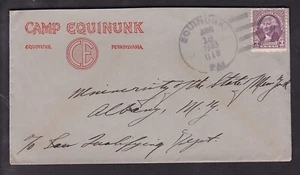 CAMP EQUINUNK
EQUINUNK, PENNSYLVANIA.
CE
EQUINUNK
AUG
PM
University of the State New York
Albany, N.Y.
To Law Qualifying Dept.